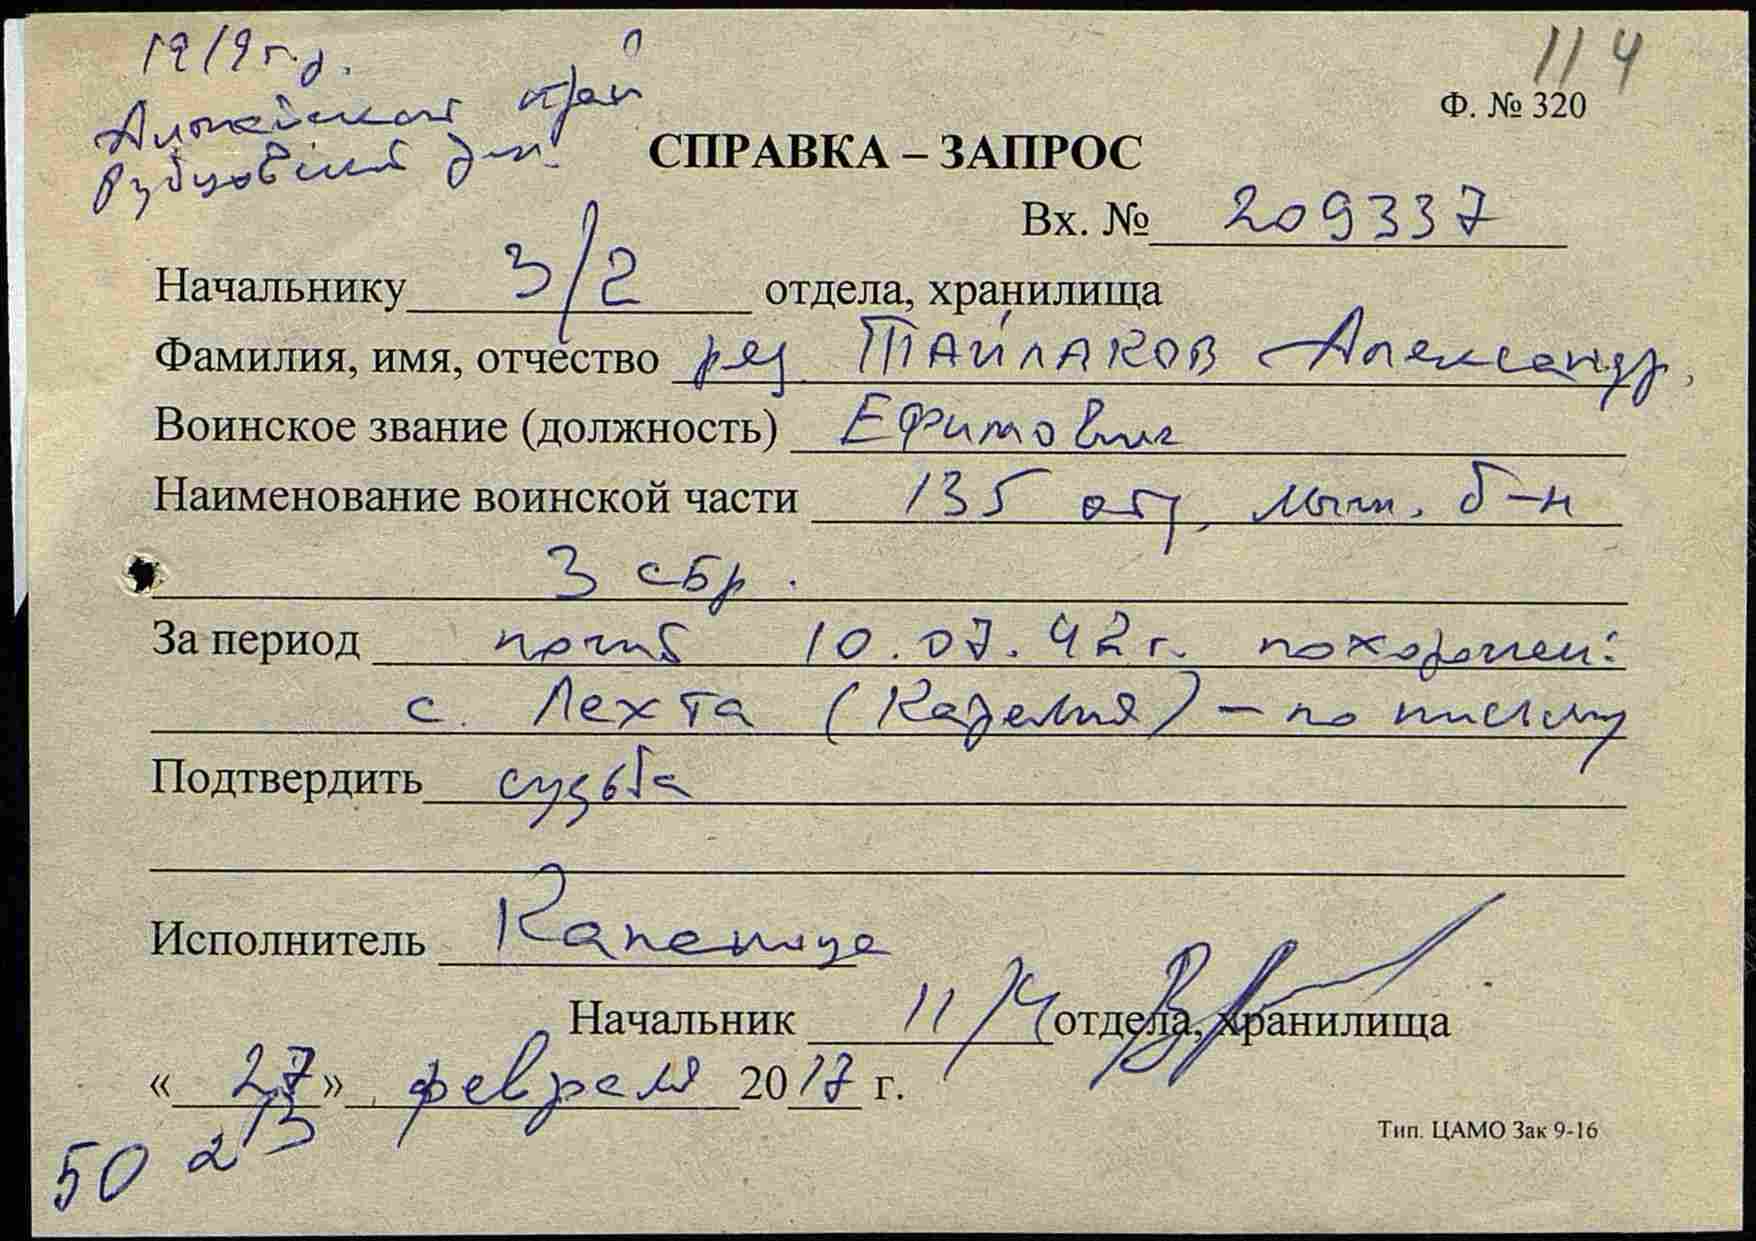 1919 г.р.
114
Алтайский край
Ф. № 320
Рубцовский р-н.
СПРАВКА – ЗАПРОС
Вх. № 209337
Начальнику 3/2 отдела, хранилища
Фамилия, имя, отчество ряд ТАЙЛАКОВ Александр
Воинское звание (должность) Ефимович
Наименование воинской части 135 отд. лыжн. б-н
3 сбр.
За период погиб 10.07.42 г. похоронен:
с. Лехта (Карелия) – по письму
Подтвердить судьба
Исполнитель
Начальник 11/4 отдела, хранилища
« 27 » февраля 2017 г.
50
Тип. ЦАМО Зак 9-16